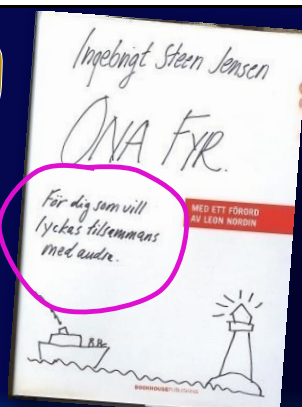 Ingebrigt Steen Jensen
ONA FYR.
För dig som vill
lyckas tillsammans
med andra.
MED ETT FÖRORD
AV LEON NORDIN
BOOKHOUSE PUBLISHING